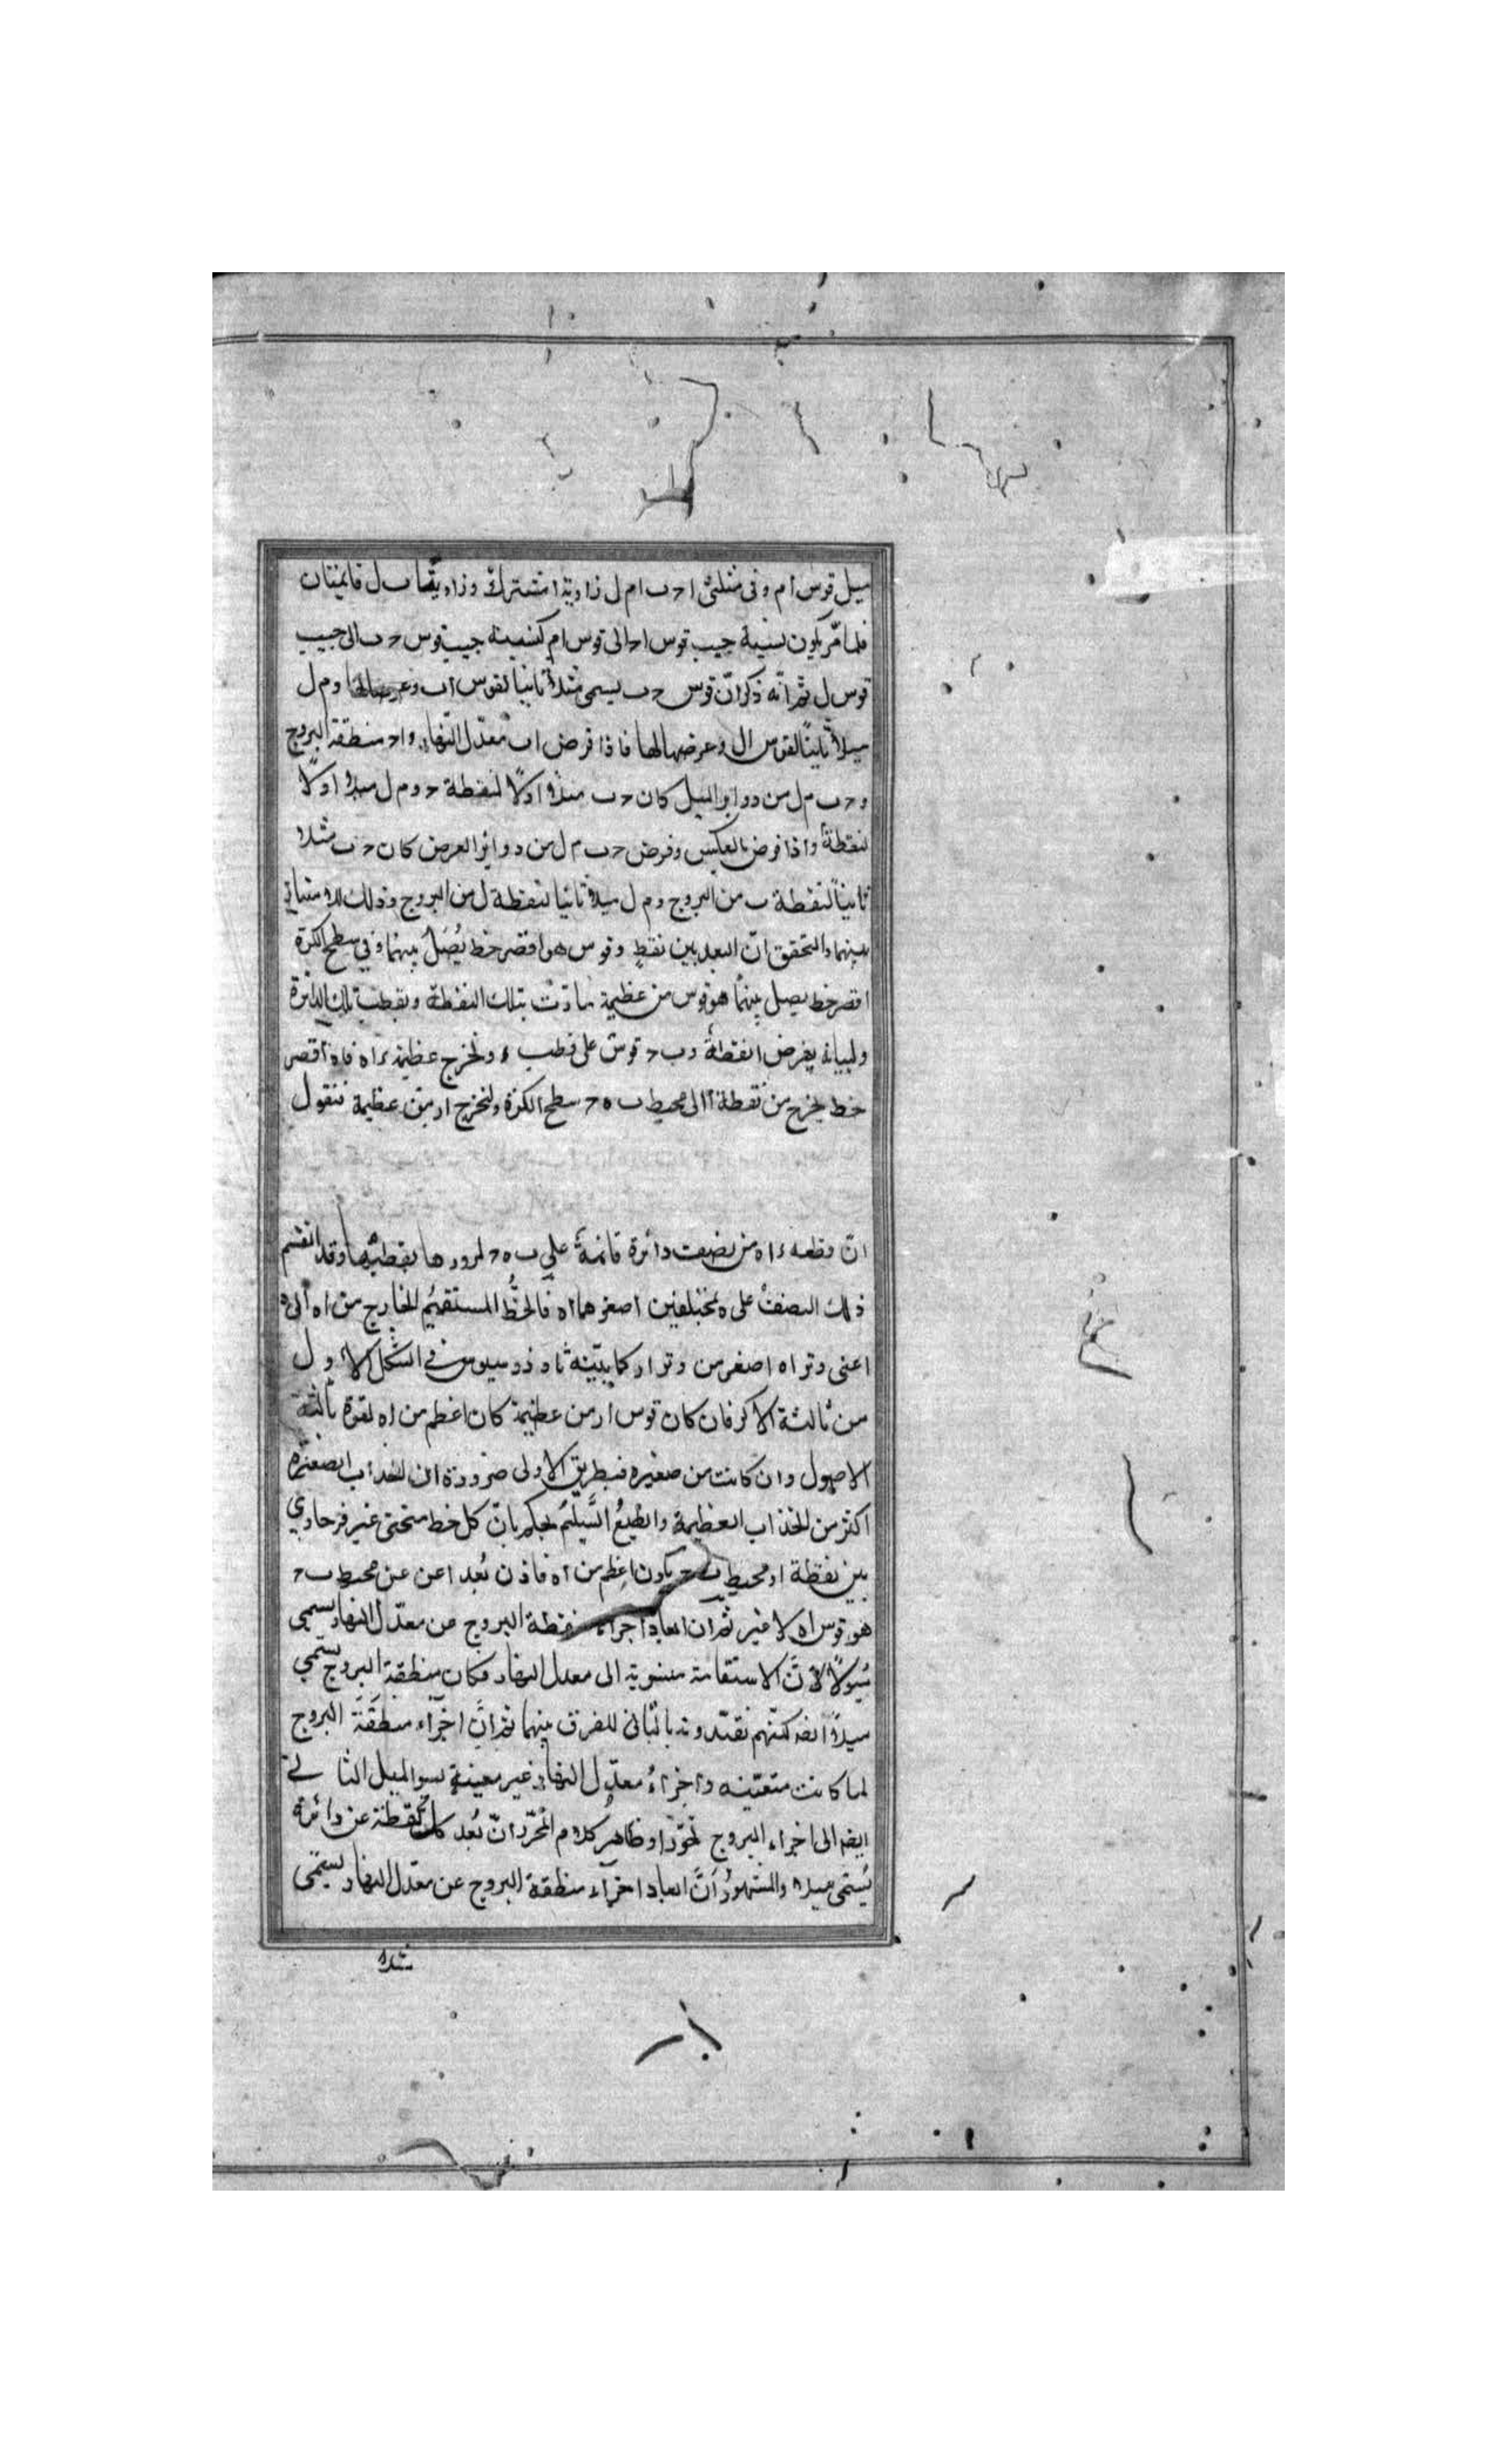 ميل قوس ام وفى مثلثى ا ح ب ام ل زاوية ا مشتركة وزاويتا ب ل قايمتان
فلما مر يكون نسبة جيب قوس اح الى قوس ام كنسبة جيب قوس ح ب الى جيب
قوس ل ثم انّه ذكر انّ قوس ح ب يسمى مثلا ثانيا لقوس اب وعرضا لها و م ل
ميلا ثانيا لقوس ال وعرضها لها فاذا فرض اب معدّل النهار و اح منطقة البروج
و ح ب م ل من دواير الميل كان ح ب مثلا اولًا لنقطة ح و م ل ميلا اولًا
لنقطة واذا فرض بالعكس وفرض ح ب م ل من دواير العرض كان ح ب مثلا
ثانياً لنقطة ب من البروج و م ل ميلا ثانيا لنقطة ل من البروج وذلك
بينهما والتحقق انّ البعد بين نقط وقوس هو اقصر خط يُصَلُ بينهما وفي سطح الكرة
اقصر خط يصل بينهما هو قوس من عظيمة مارّت بتلك النقطة وبقطب تلك الدائرة
ولبيانه يفرض ا نقطة و ب ح قوس على قطب ء ولخرج عظيمة ء ا ه فاه اقصر
خط يخرج من نقطة ا الى محيط ب ه ح سطح الكرة ولنخرج ار من عظيمة فنقول
انّ وقطعه ء ا ه من نصف دائرة قائمةً على ب ه ح لمرورها بقطبيها وقد انقسم
ذلك النصف على ه بمختلفين اصغرهما اه فالخطُّ المستقيم الخارج من اه الى ه
اعنى وتر اه اصغر من وتر ار كما بيّنه ثاوذوسيوس في الشكل الاول
من ثالثة الاكر فان كان قوس ار من عظيمة كان اعظم من اه لقوة ثالثة
الاصول وان كانت من صغيره فبطريق الاولى ضرورة ان لنحذاب الصغيره
اكثر من لنحذاب العظيمة والطبعُ السَّليمُ يحكم بانّ كل خط منحنى غير فرحاوي
بين نقطة ا ومحيط ب ح يكون اعظم من اه فاذن بُعد ا عن عن محيط ب ح
هو قوس اه لا غير ثم ان ابعاد اجراء نقطة البروج من معدّل النهار يسمى
ميولًا لانَّ الاستقامة منسوبة الى معدل النهار فكان منطقة البروج يسمّى
ميلًا ايضا لكنّهم نقيّدونه بالثانى للفرق بينهما ثم انَّ اجزآء منطقة البروج
لما كانت متعيّنه واجراءُ معدّل النهار غير معينة نسبوا لميل الثانى
ايضا الى اجراء البروج تجوّزا وظاهر كلام المحرّر انّ بُعد كل نقطة عن دائرة
يُسمّى ميلا والمشهورُ انَّ ابعاد اجزآء منطقة البروج عن معدّل النهار يسمّى
مثلا